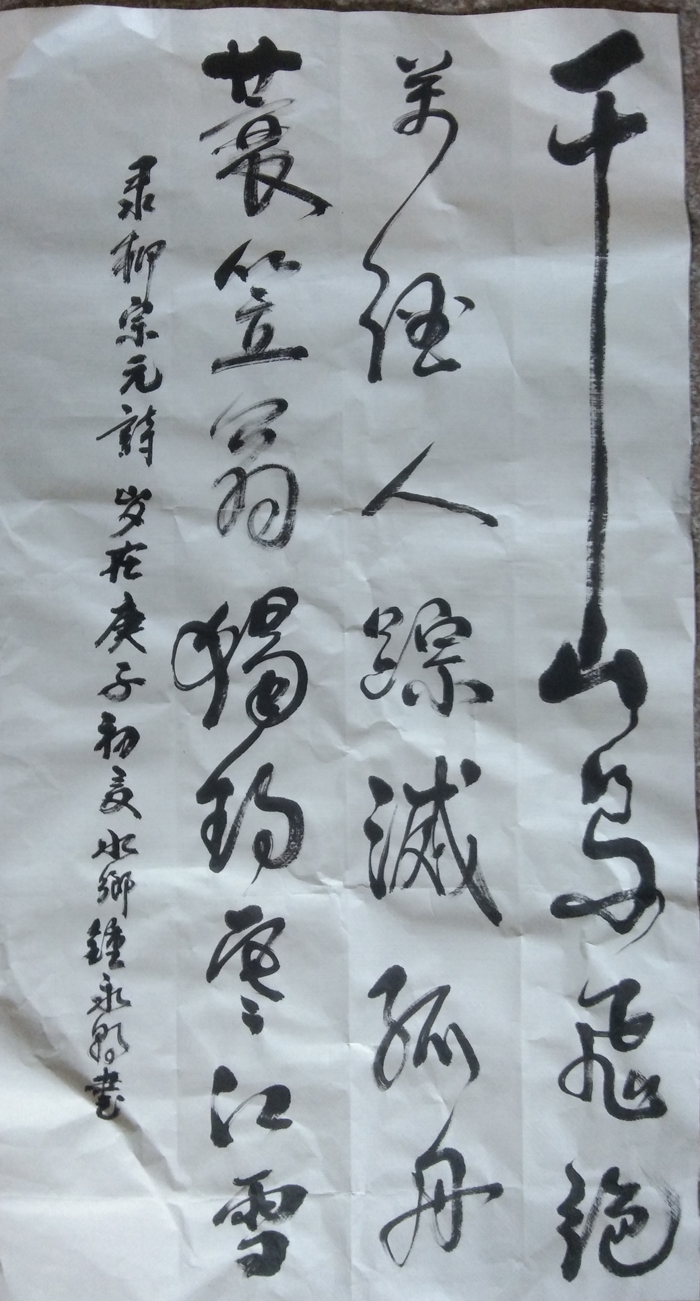 千山鸟飛絶
萬径人踪滅孤舟
蓑笠翁獨钓寒江雪
录柳宗元詩 岁在庚子初夏水鄉鍾永書